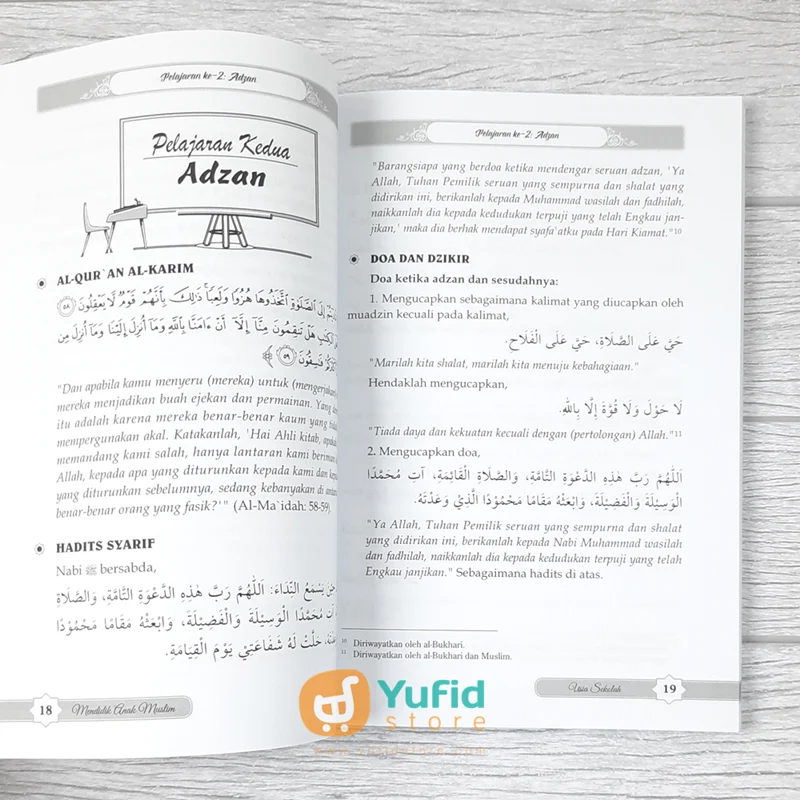 Pelajaran ke-2: Adzan
Pelajaran Kedua
Adzan
AL-QUR`AN AL-KARIM
إِلَى ٱلصَّلَوٰةِ ٱتَّخَذُوهَا هُزُوًا وَلَعِبًا ۚ ذَٰلِكَ بِأَنَّهُمْ قَوْمٌ لَّا يَعْقِلُونَ ٥٨
هَلْ تَنقِمُونَ مِنَّآ إِلَّآ أَنْ ءَامَنَّا بِٱللَّهِ وَمَآ أُنزِلَ إِلَيْنَا وَمَآ أُنزِلَ مِن
فَٰسِقُونَ ٥٩
"Dan apabila kamu menyeru (mereka) untuk (mengerjakan
mereka menjadikan buah ejekan dan permainan. Yang
itu adalah karena mereka benar-benar kaum yang
mempergunakan akal. Katakanlah, 'Hai Ahli kitab,
memandang kami salah, hanya lantaran kami beriman
Allah, kepada apa yang diturunkan kepada kami dan
yang diturunkan sebelumnya, sedang kebanyakan di
benar-benar orang yang fasik?'" (Al-Ma`idah: 58-59)
HADITS SYARIF
Nabi ﷺ bersabda,
يَسْمَعُ النِّدَاءَ: اَللَّهُمَّ رَبَّ هٰذِهِ الدَّعْوَةِ التَّامَّةِ، وَالصَّلَاةِ
آتِ مُحَمَّدًا الْوَسِيْلَةَ وَالْفَضِيْلَةَ، وَابْعَثْهُ مَقَامًا مَحْمُوْدًا
حَلَّتْ لَهُ شَفَاعَتِيْ يَوْمَ الْقِيَامَةِ.
18 Mendidik Anak Muslim
Pelajaran ke-2: Adzan
"Barangsiapa yang berdoa ketika mendengar seruan adzan, 'Ya
Allah, Tuhan Pemilik seruan yang sempurna dan shalat yang
didirikan ini, berikanlah kepada Muhammad wasilah dan fadhilah,
naikkanlah dia kepada kedudukan terpuji yang telah Engkau jan-
jikan,' maka dia berhak mendapat syafa'atku pada Hari Kiamat."10
DOA DAN DZIKIR
Doa ketika adzan dan sesudahnya:
1. Mengucapkan sebagaimana kalimat yang diucapkan oleh
muadzin kecuali pada kalimat,
حَيَّ عَلَى الصَّلَاةِ، حَيَّ عَلَى الْفَلَاحِ.
"Marilah kita shalat, marilah kita menuju kebahagiaan."
Hendaklah mengucapkan,
لَا حَوْلَ وَلَا قُوَّةَ إِلَّا بِاللهِ.
"Tiada daya dan kekuatan kecuali dengan (pertolongan) Allah."11
2. Mengucapkan doa,
اَللَّهُمَّ رَبَّ هٰذِهِ الدَّعْوَةِ التَّامَّةِ، وَالصَّلَاةِ الْقَائِمَةِ، آتِ مُحَمَّدًا
الْوَسِيْلَةَ وَالْفَضِيْلَةَ، وَابْعَثْهُ مَقَامًا مَحْمُوْدًا الَّذِيْ وَعَدْتَهُ.
"Ya Allah, Tuhan Pemilik seruan yang sempurna dan shalat
yang didirikan ini, berikanlah kepada Nabi Muhammad wasilah
dan fadhilah, naikkanlah dia kepada kedudukan terpuji yang telah
Engkau janjikan." Sebagaimana hadits di atas.
10 Diriwayatkan oleh al-Bukhari.
11 Diriwayatkan oleh al-Bukhari dan Muslim.
Usia Sekolah 19
Yufid
store
www.yufidstore.com